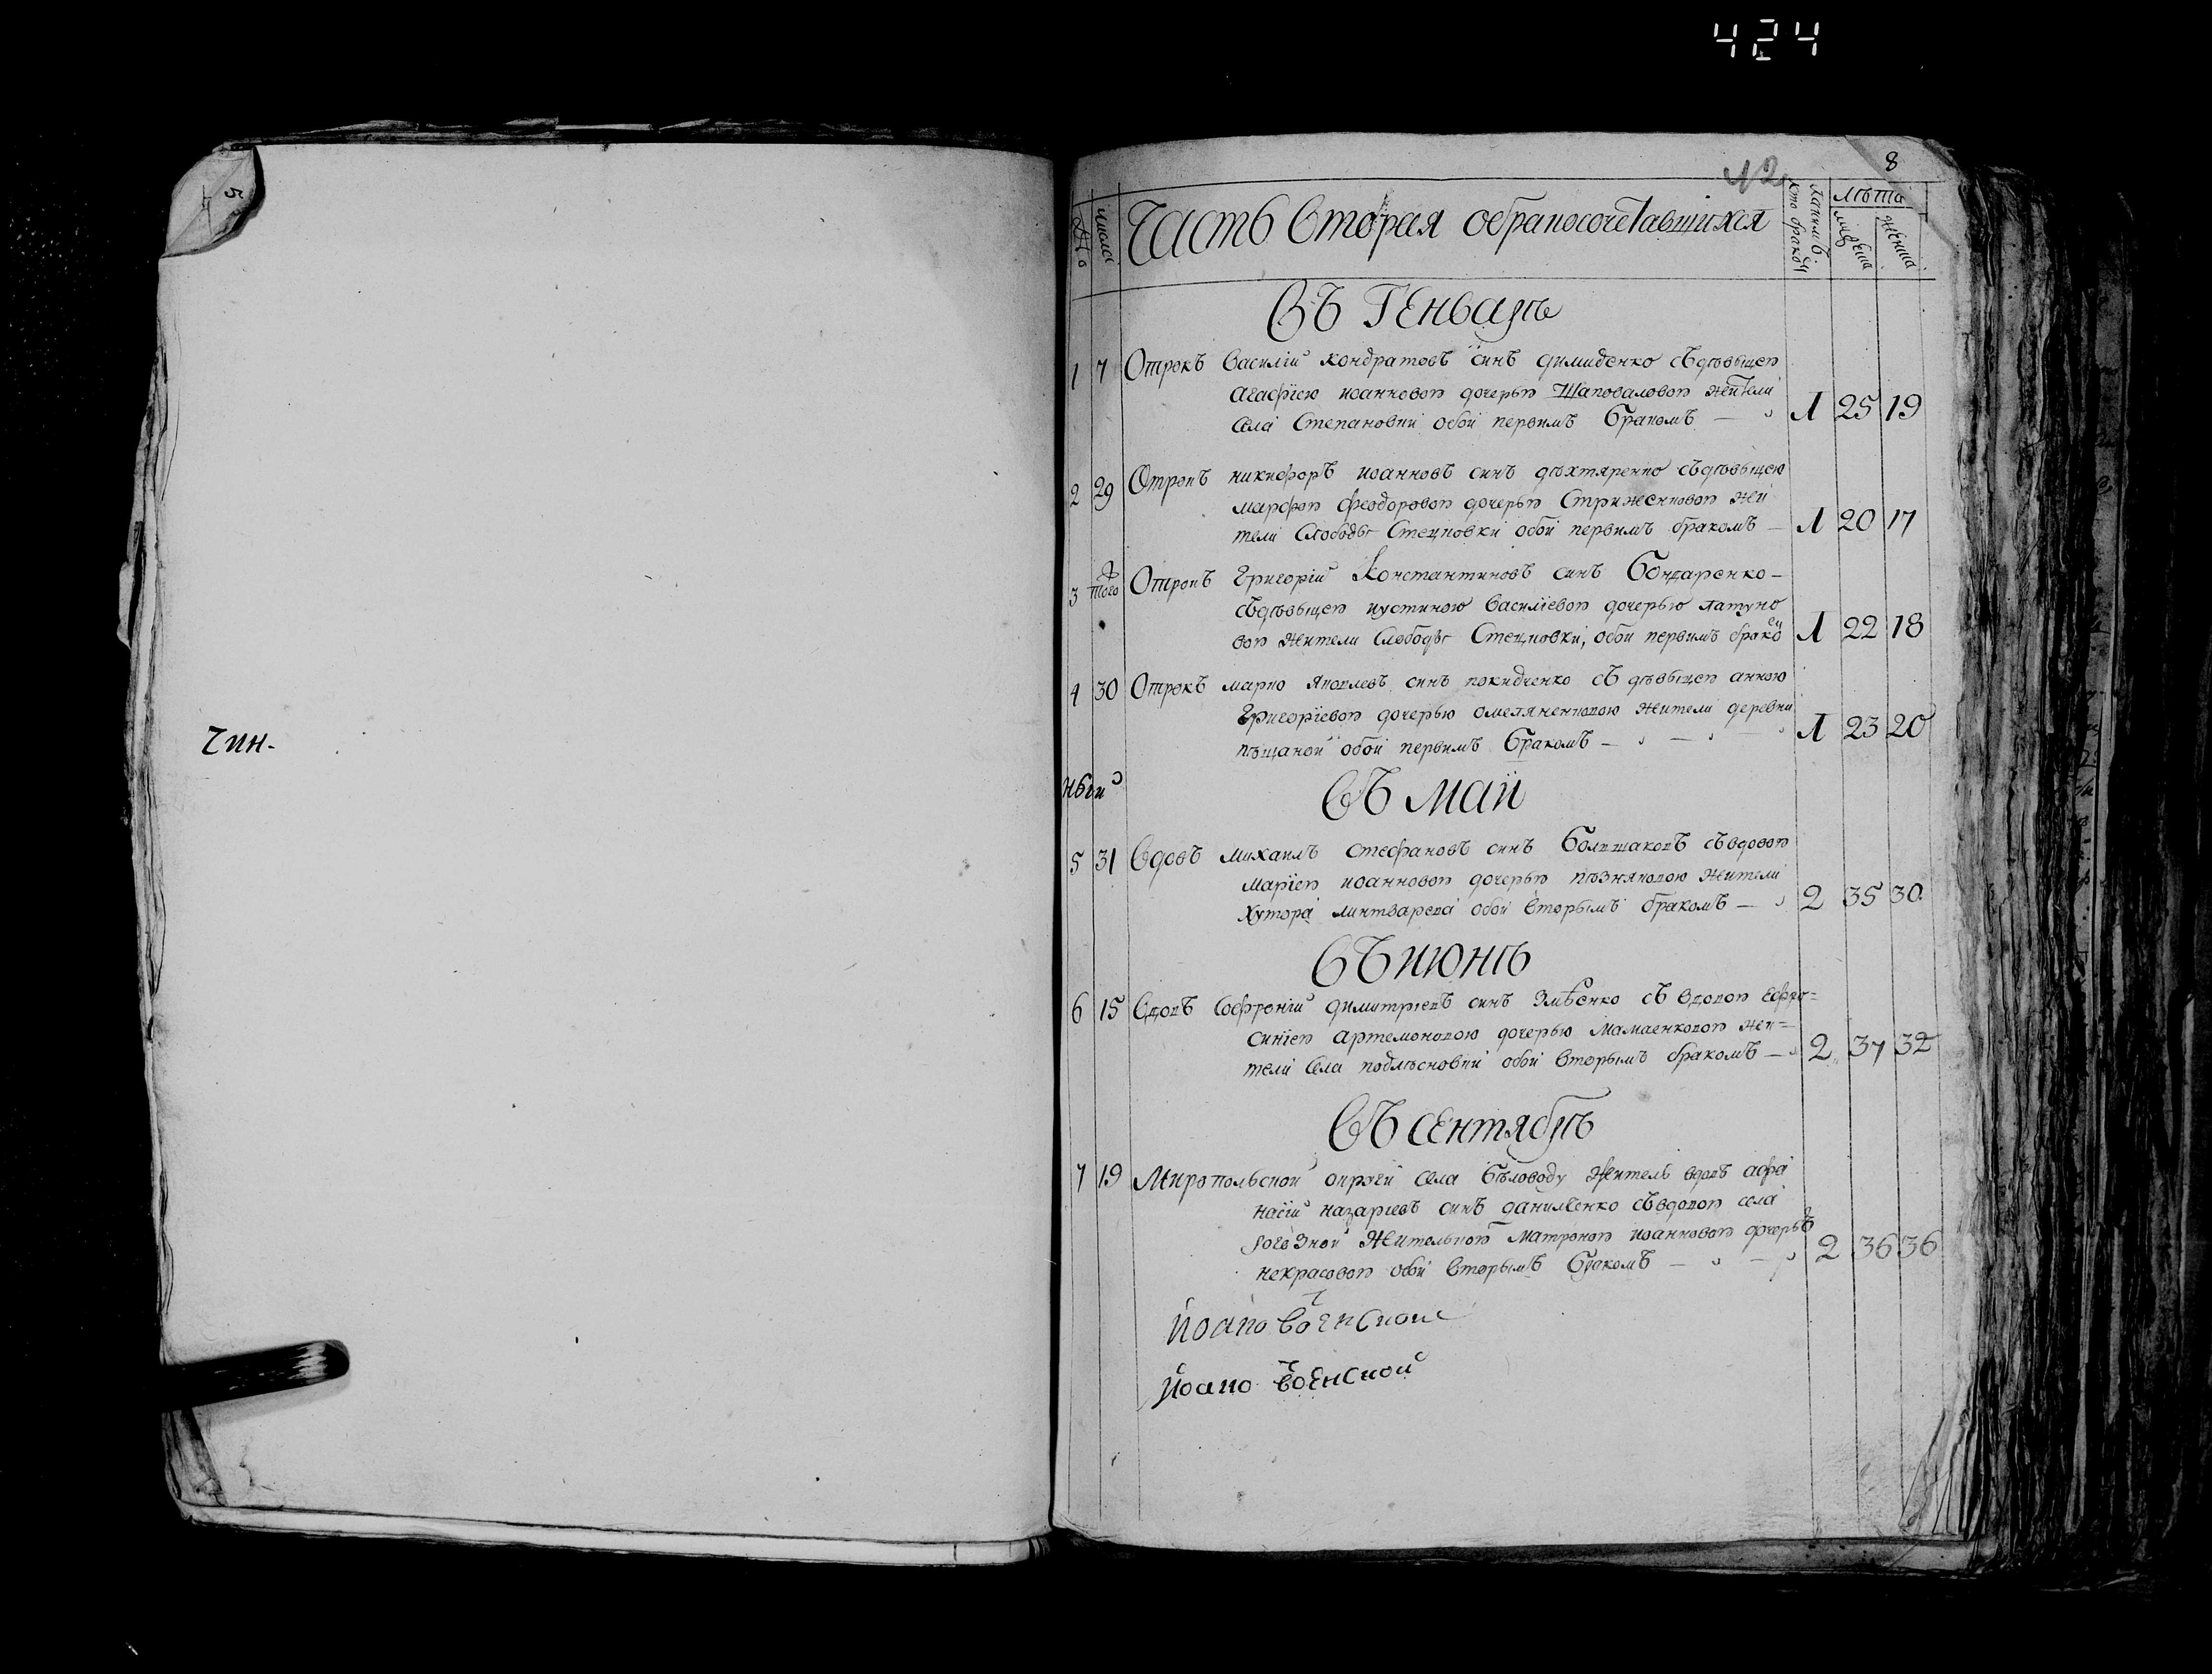 424
5
Чин-
8
42
№
число
Часть Вторая обракосочетавшихся
которимъ бракомъ
Лѣта
мужеска
женска
Въ Генварѣ
1 7 Отрокъ Василій кондратовъ синъ димиденко съдѣвицею
агафіею иоанновою дочерью Шаповаловою жители
села Степановки обои первимъ бракомъ — 1 25 19
2 29 Отрокъ никифоръ иоанновъ синъ дѣхтяренко съдѣвицею
марфою феодоровою дочерью Стриженковою жи
тели Слободы Стецковки обои первимъ бракомъ — 1 20 17
3 того Отрокъ Григорій Константиновъ синъ Бондаренко-
съдѣвицею иустиною Василіевою дочерью латуно
вою жители Слободы Стецковки, обои первимъ брако 1 22 18
4 30 Отрокъ марко яковлевъ синъ покидченко съ дѣвицею анною
Григоріевою дочерью омеляненковою жители деревни
пѣщаной обои первимъ бракомъ — 1 23 20
Въ маи
5 31 Вдовъ михаилъ стефановъ синъ Болшаковъ съвдовою
маріею иоанновою дочерью пѣзняковою жители
хутора линтварева обои вторымъ бракомъ — 2 35 30
Въ июнѣ
6 15 Вдовъ Софроній димитріевъ синъ Змѣенко съ вдовою ефро=
синіею артемоновою дочерью мамаенковою жи=
тели села подлѣсновки обои вторымъ бракомъ — 2 37 32
Въ сентябрѣ
7 19 Миропольской округи села Бѣловоду житель вдовъ афа
насій назаріевъ синъ даниленко съвдовою села
рогозной жительною матроною иоанновою дочерью
некрасовою обои вторымъ бракомъ — 2 36 36